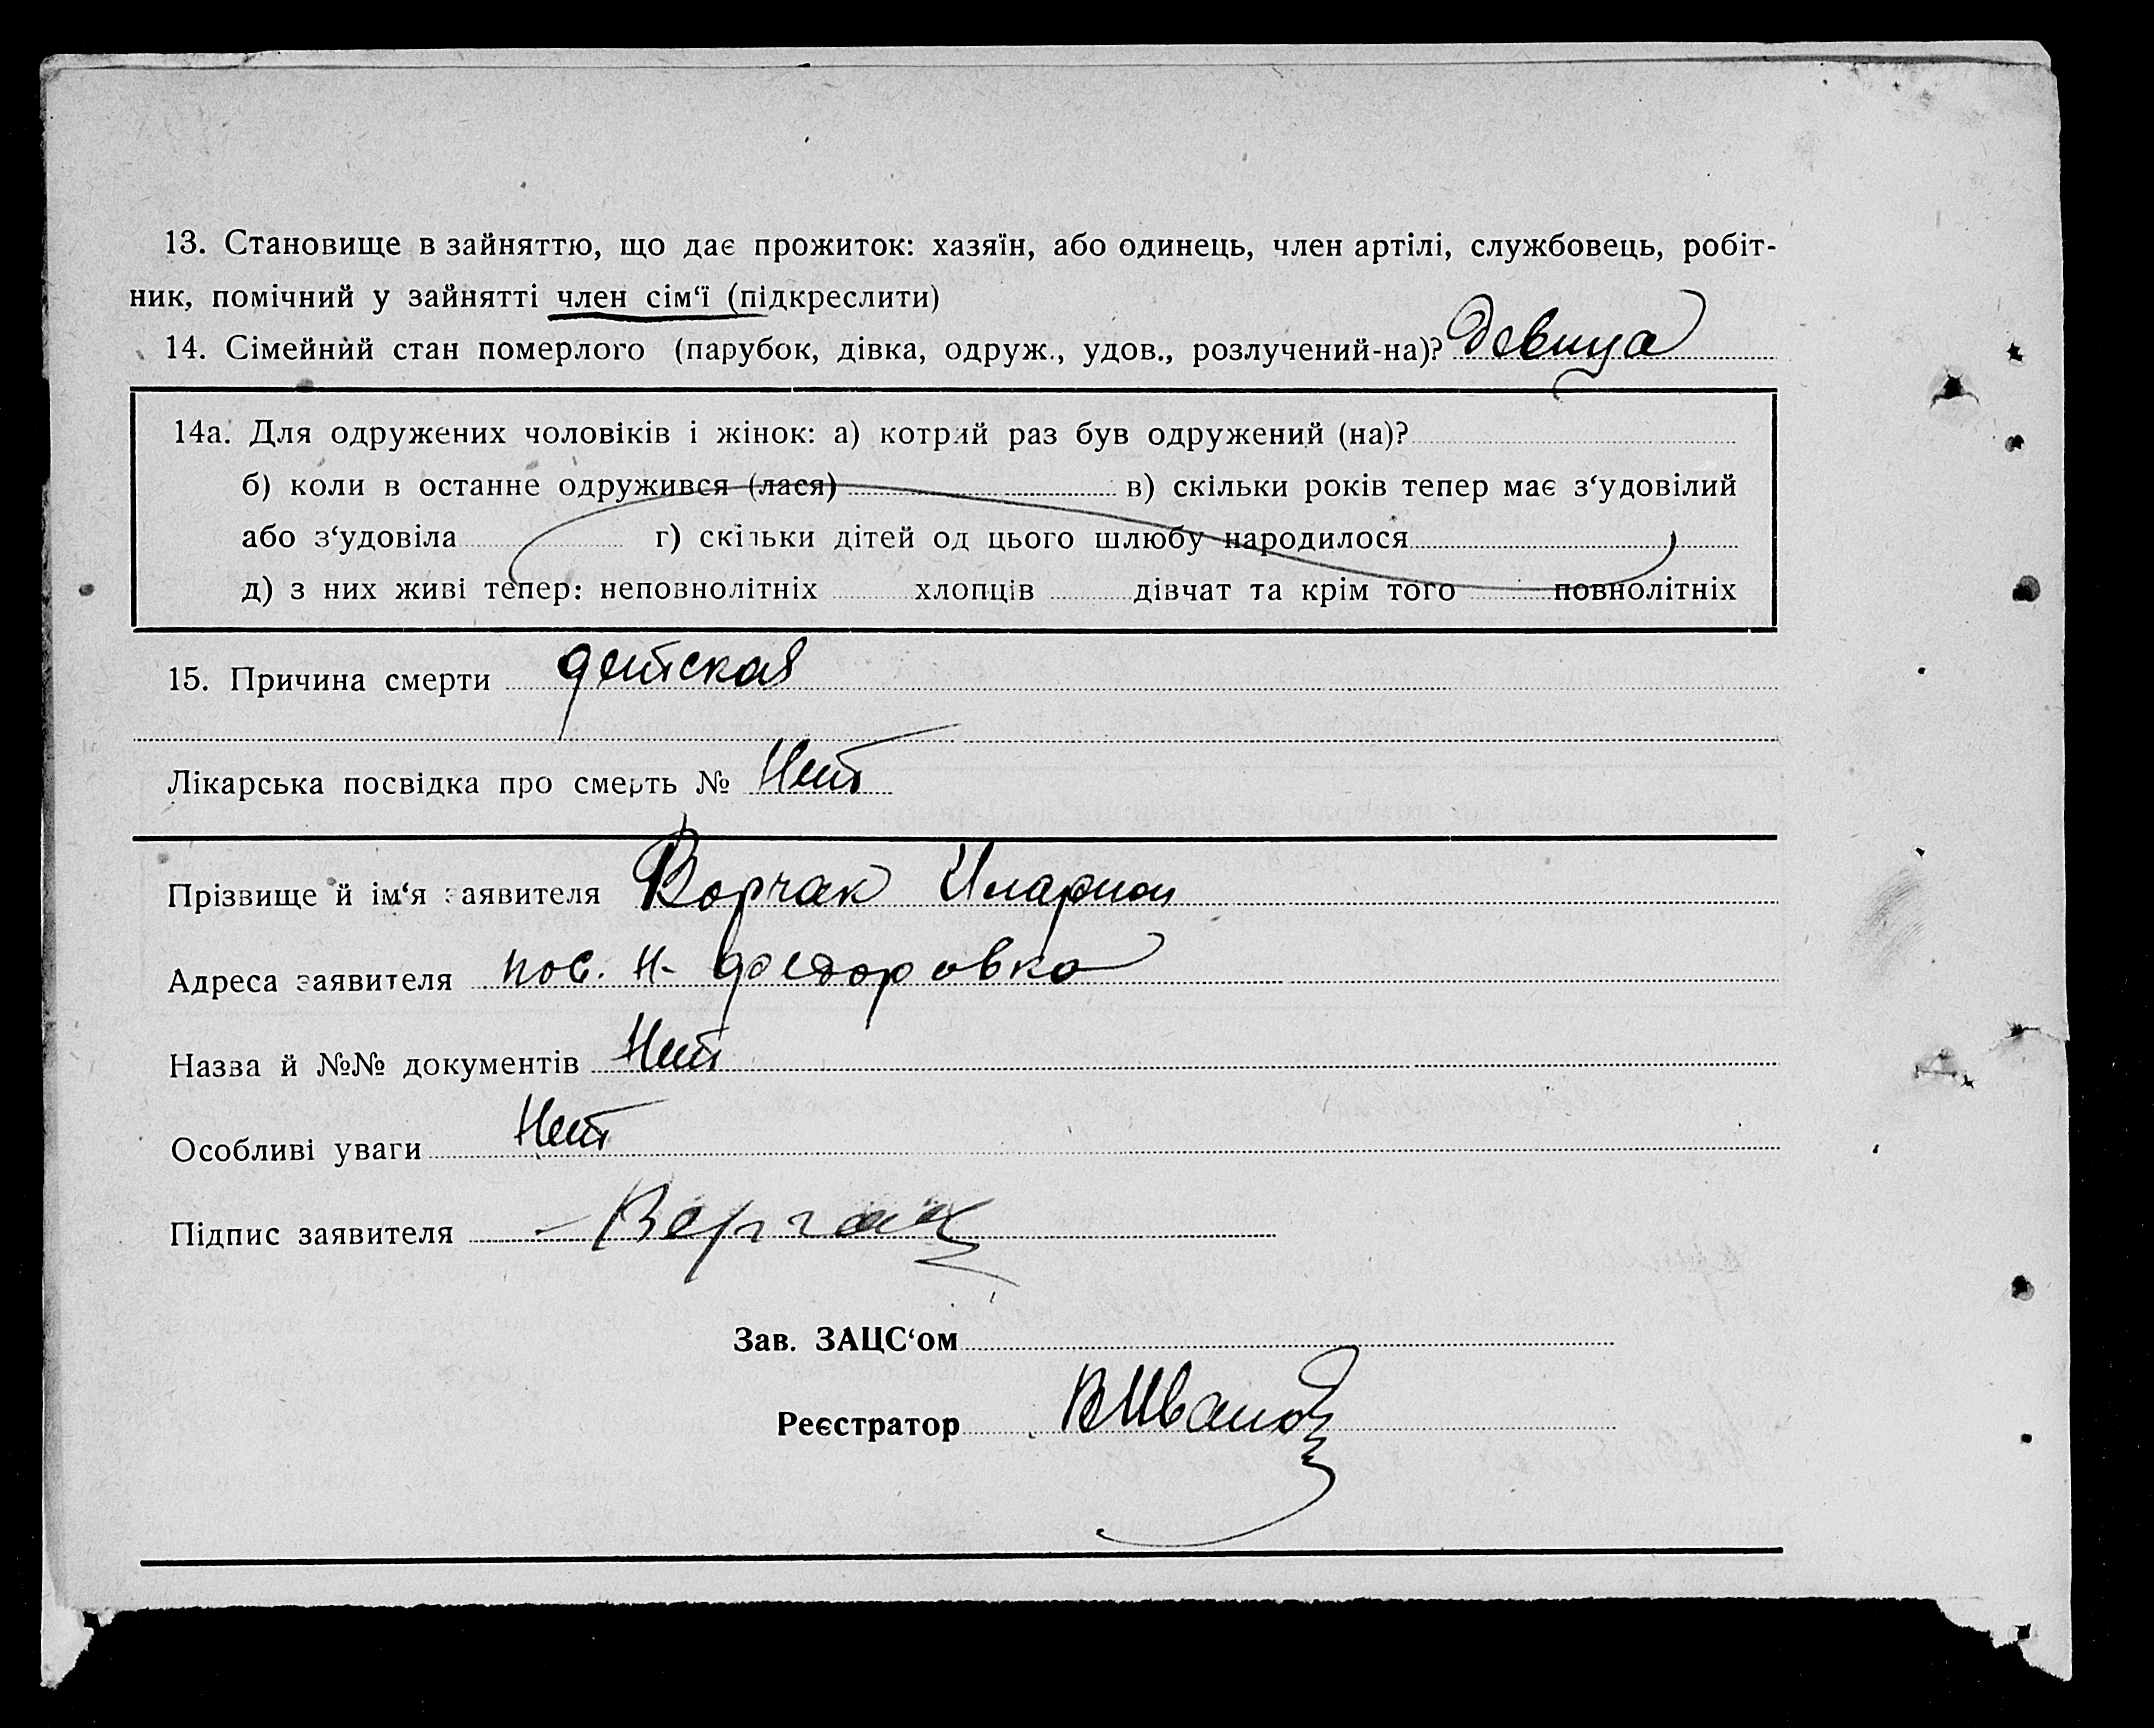 13. Становище в зайняттю, що дає прожиток: хазяїн, або одинець, член артілі, службовець, робіт-
ник, помічний у зайнятті член сім‘ї (підкреслити)
14. Сімейний стан померлого (парубок, дівка, одруж., удов., розлучений-на)? девица
14а. Для одружених чоловіків і жінок: а) котрий раз був одружений (на)?
б) коли в останне одружився (лася) в) скільки років тепер має з‘удовілий
або з‘удовіла г) скільки дітей од цього шлюбу народилося
д) з них живі тепер: неповнолітніх хлопців дівчат та крім того повнолітніх
15. Причина смерти детская
Лікарська посвідка про смерть № Нет
Прізвище й ім‘я заявителя Ворчак Иларион
Адреса заявителя пос. Н- Федоровка
Назва й №№ документів Нет
Особливі уваги Нет
Підпис заявителя
Зав. ЗАЦС‘ом
Реєстратор ВИванов